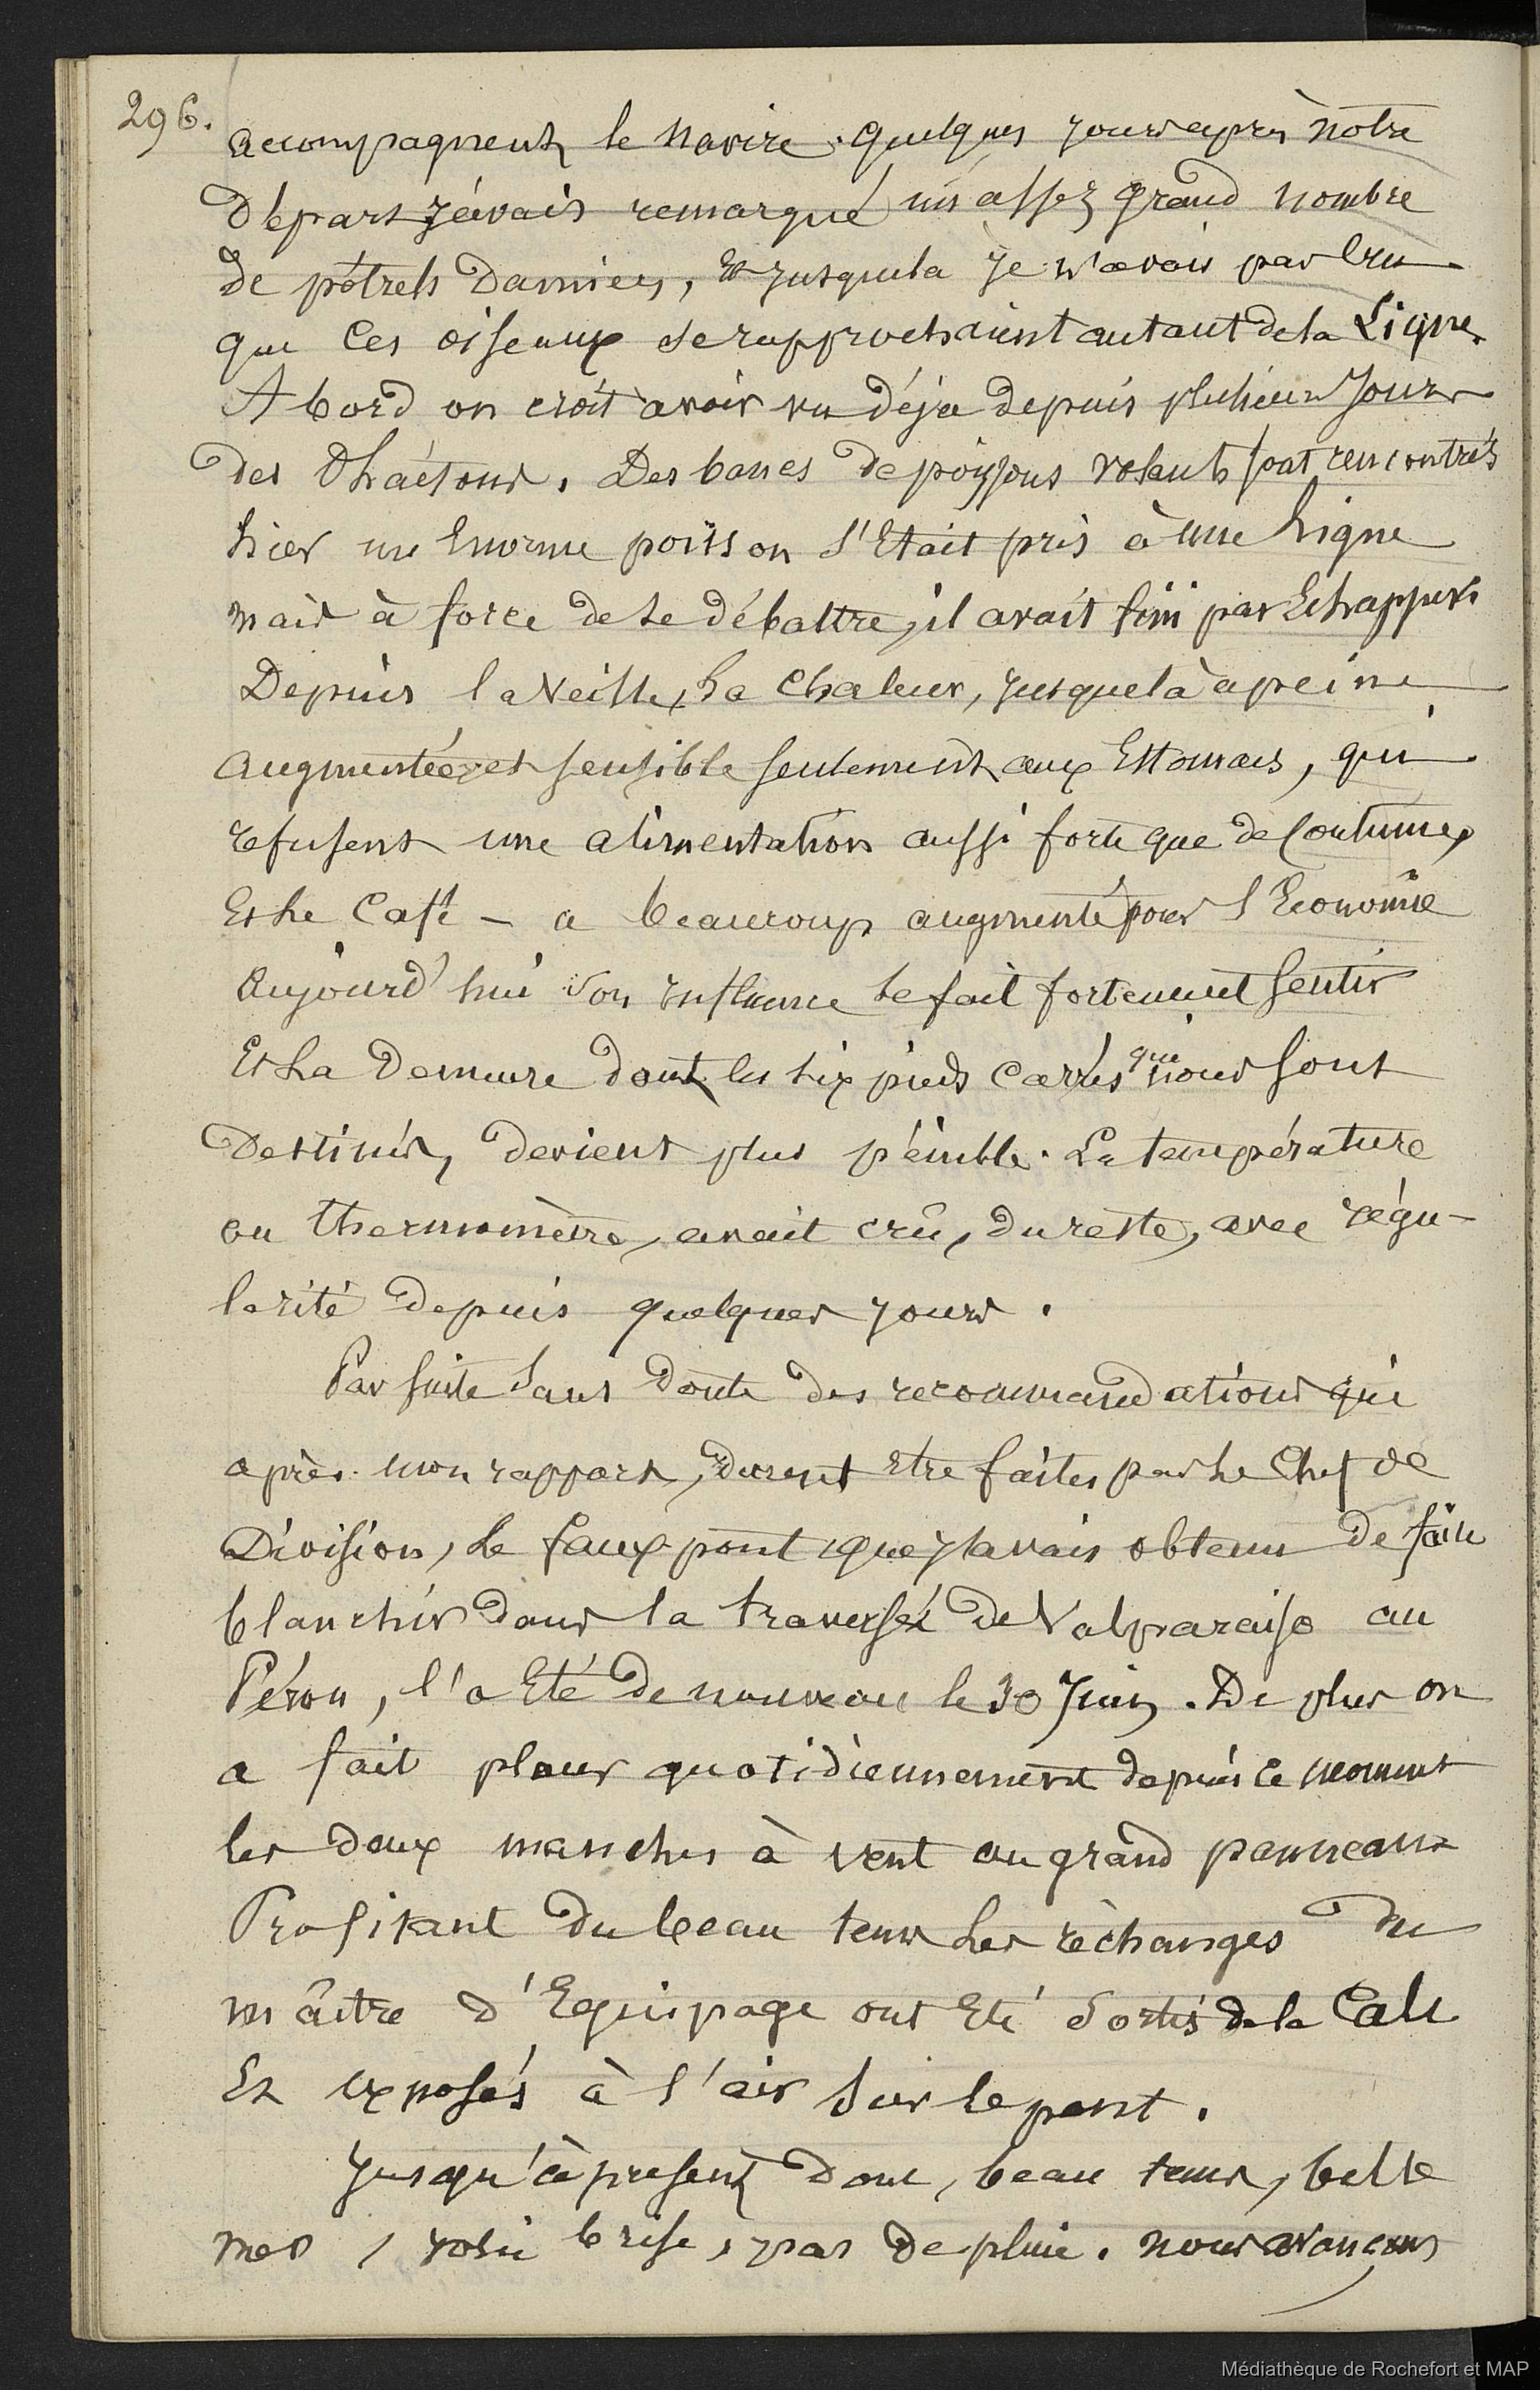 296.
accompagnent le navire. quelques jours après notre
départ j'avais remarqué un assez grand nombre
de pétrels Damiers, et jusque là je n'avais pas cru
que ces oiseaux se rapprochaient autant de la Ligne.
A bord on croit avoir vu déjà depuis plusieurs jours
des Phaétons. Des bancs de poissons volants sont rencontrés
hier un Enorme poisson s'Etait pris à une ligne
mais à force de se débattre, il avait fini par Echapper.
Depuis la veille, la Chaleur, jusque là à peine
augmentée, et sensible seulement aux Estomacs, qui
refusent une alimentation aussi forte que de Coutume,
Et le Café – a beaucoup augmenté pour l'Economie
Aujourd'hui son influence se fait fortement sentir
Et la Demeure dont les six pieds Carrés qui nous sont
Destinés, devient plus pénible. La température
au thermomètre, avait crû, du reste, avec régu-
larité depuis quelques jours.
Par suite sans doute des recommandations qui
après mon rapport, durent Etre faites par le Chef de
Division, le faux pont que j'avais obtenu de faire
blanchir dans la traversée de Valparaiso au
Pérou, l'a Eté de nouveau le 30 Juin. De plus on
a fait placer quotidiennement depuis ce moment
les deux manches à vent au grand panneau
Profitant du beau tems les rechanges du
maître d'Equipage ont Eté sortis de la Cale
Et exposés à l'air sur le pont.
Jusqu'à présent donc, beau tems, belle
mer, jolie brise, pas de pluie. nous avançons
Médiathèque de Rochefort et MAP